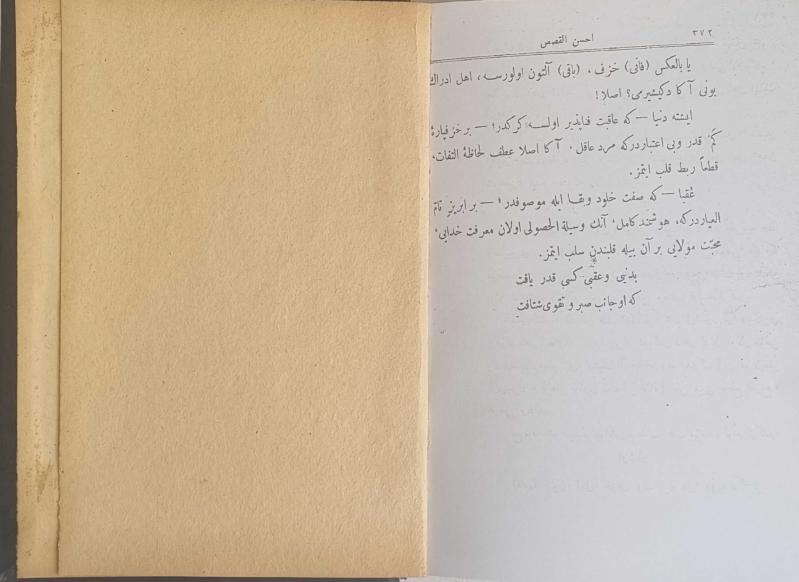 ٣٧٢
احسن القصص
يا بالعكس (فانى) خزف، (باقى) آلتون اولورسه، اهل ادراك
بونى آكا دكيشيرمى؟ اصلا!
ايشته دنيا — كه عاقبت فناپذير اولسه كركدر؛ — برخزفپارۀ
كم قدر وبى اعتباردركه مرد عاقل، آكا اصلا عطف لحاظۀ التفات،
قطعاً ربط قلب ايتمز.
عُقبا — كه صفت خلود وبقا ايله موصوفدر؛ — برابريز تام
العياردركه، هوشمند كامل، آنك وسيلة الحصولى اولان معرفت خدايى،
محبّت مولايى بر آن بيله قلبندن سلب ايتمز.
بدنيى وعقبى كسى قدر يافت
كه اوجانب صبر و تقوى شتافت